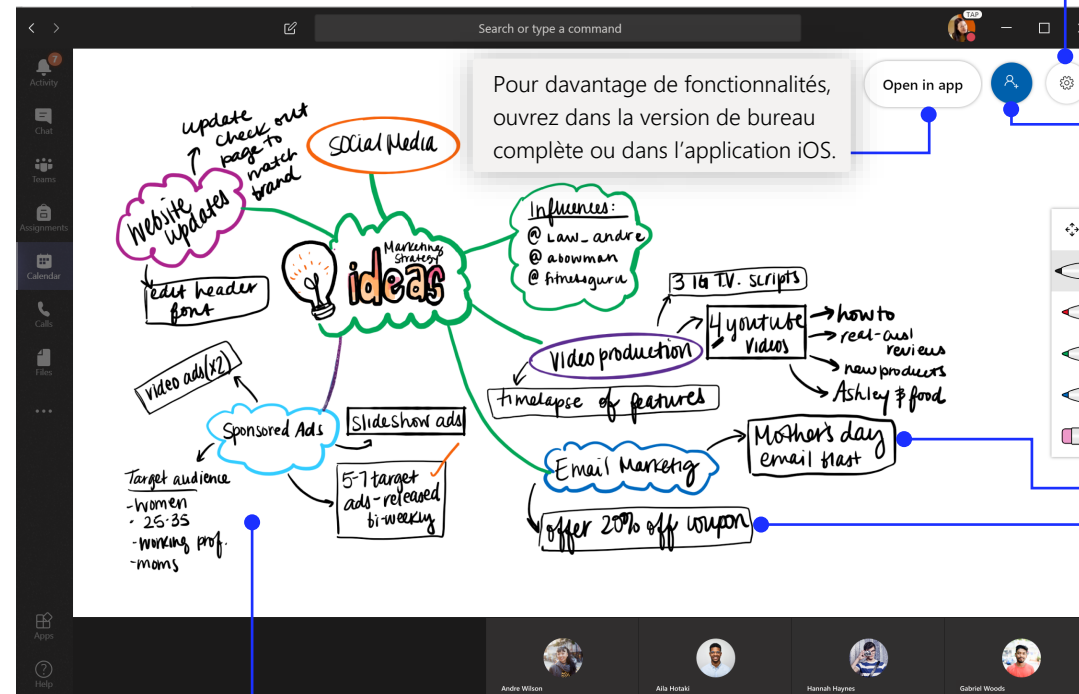 Search or type a command
TAP
7
Activity
Chat
Teams
Assignments
Calendar
Calls
Files
Apps
Help
Pour davantage de fonctionnalités,
ouvrez dans la version de bureau
complète ou dans l'application iOS.
Open in app
update
check out
page to
match
brand
Social Media
website
updates
edit header
font
Marketing
Strategy
ideas
Influences:
@ Law_andre
@ abowman
@ fitnessguru
3 IG T.V. scripts
4 youtube
videos
how to
real-cust
reviews
new products
Ashley & food
video production
timelapse of features
video ads (x2)
Sponsored Ads
Slideshow ads
Target audience
-women
· 25-35
-working prof.
-moms
5-7 target
ads-released
bi-weekly
Email Marketig
Mother's day
email blast
offer 20% off coupon
Andre Wilson
Aila Hotaki
Hannah Haynes
Gabriel Woods